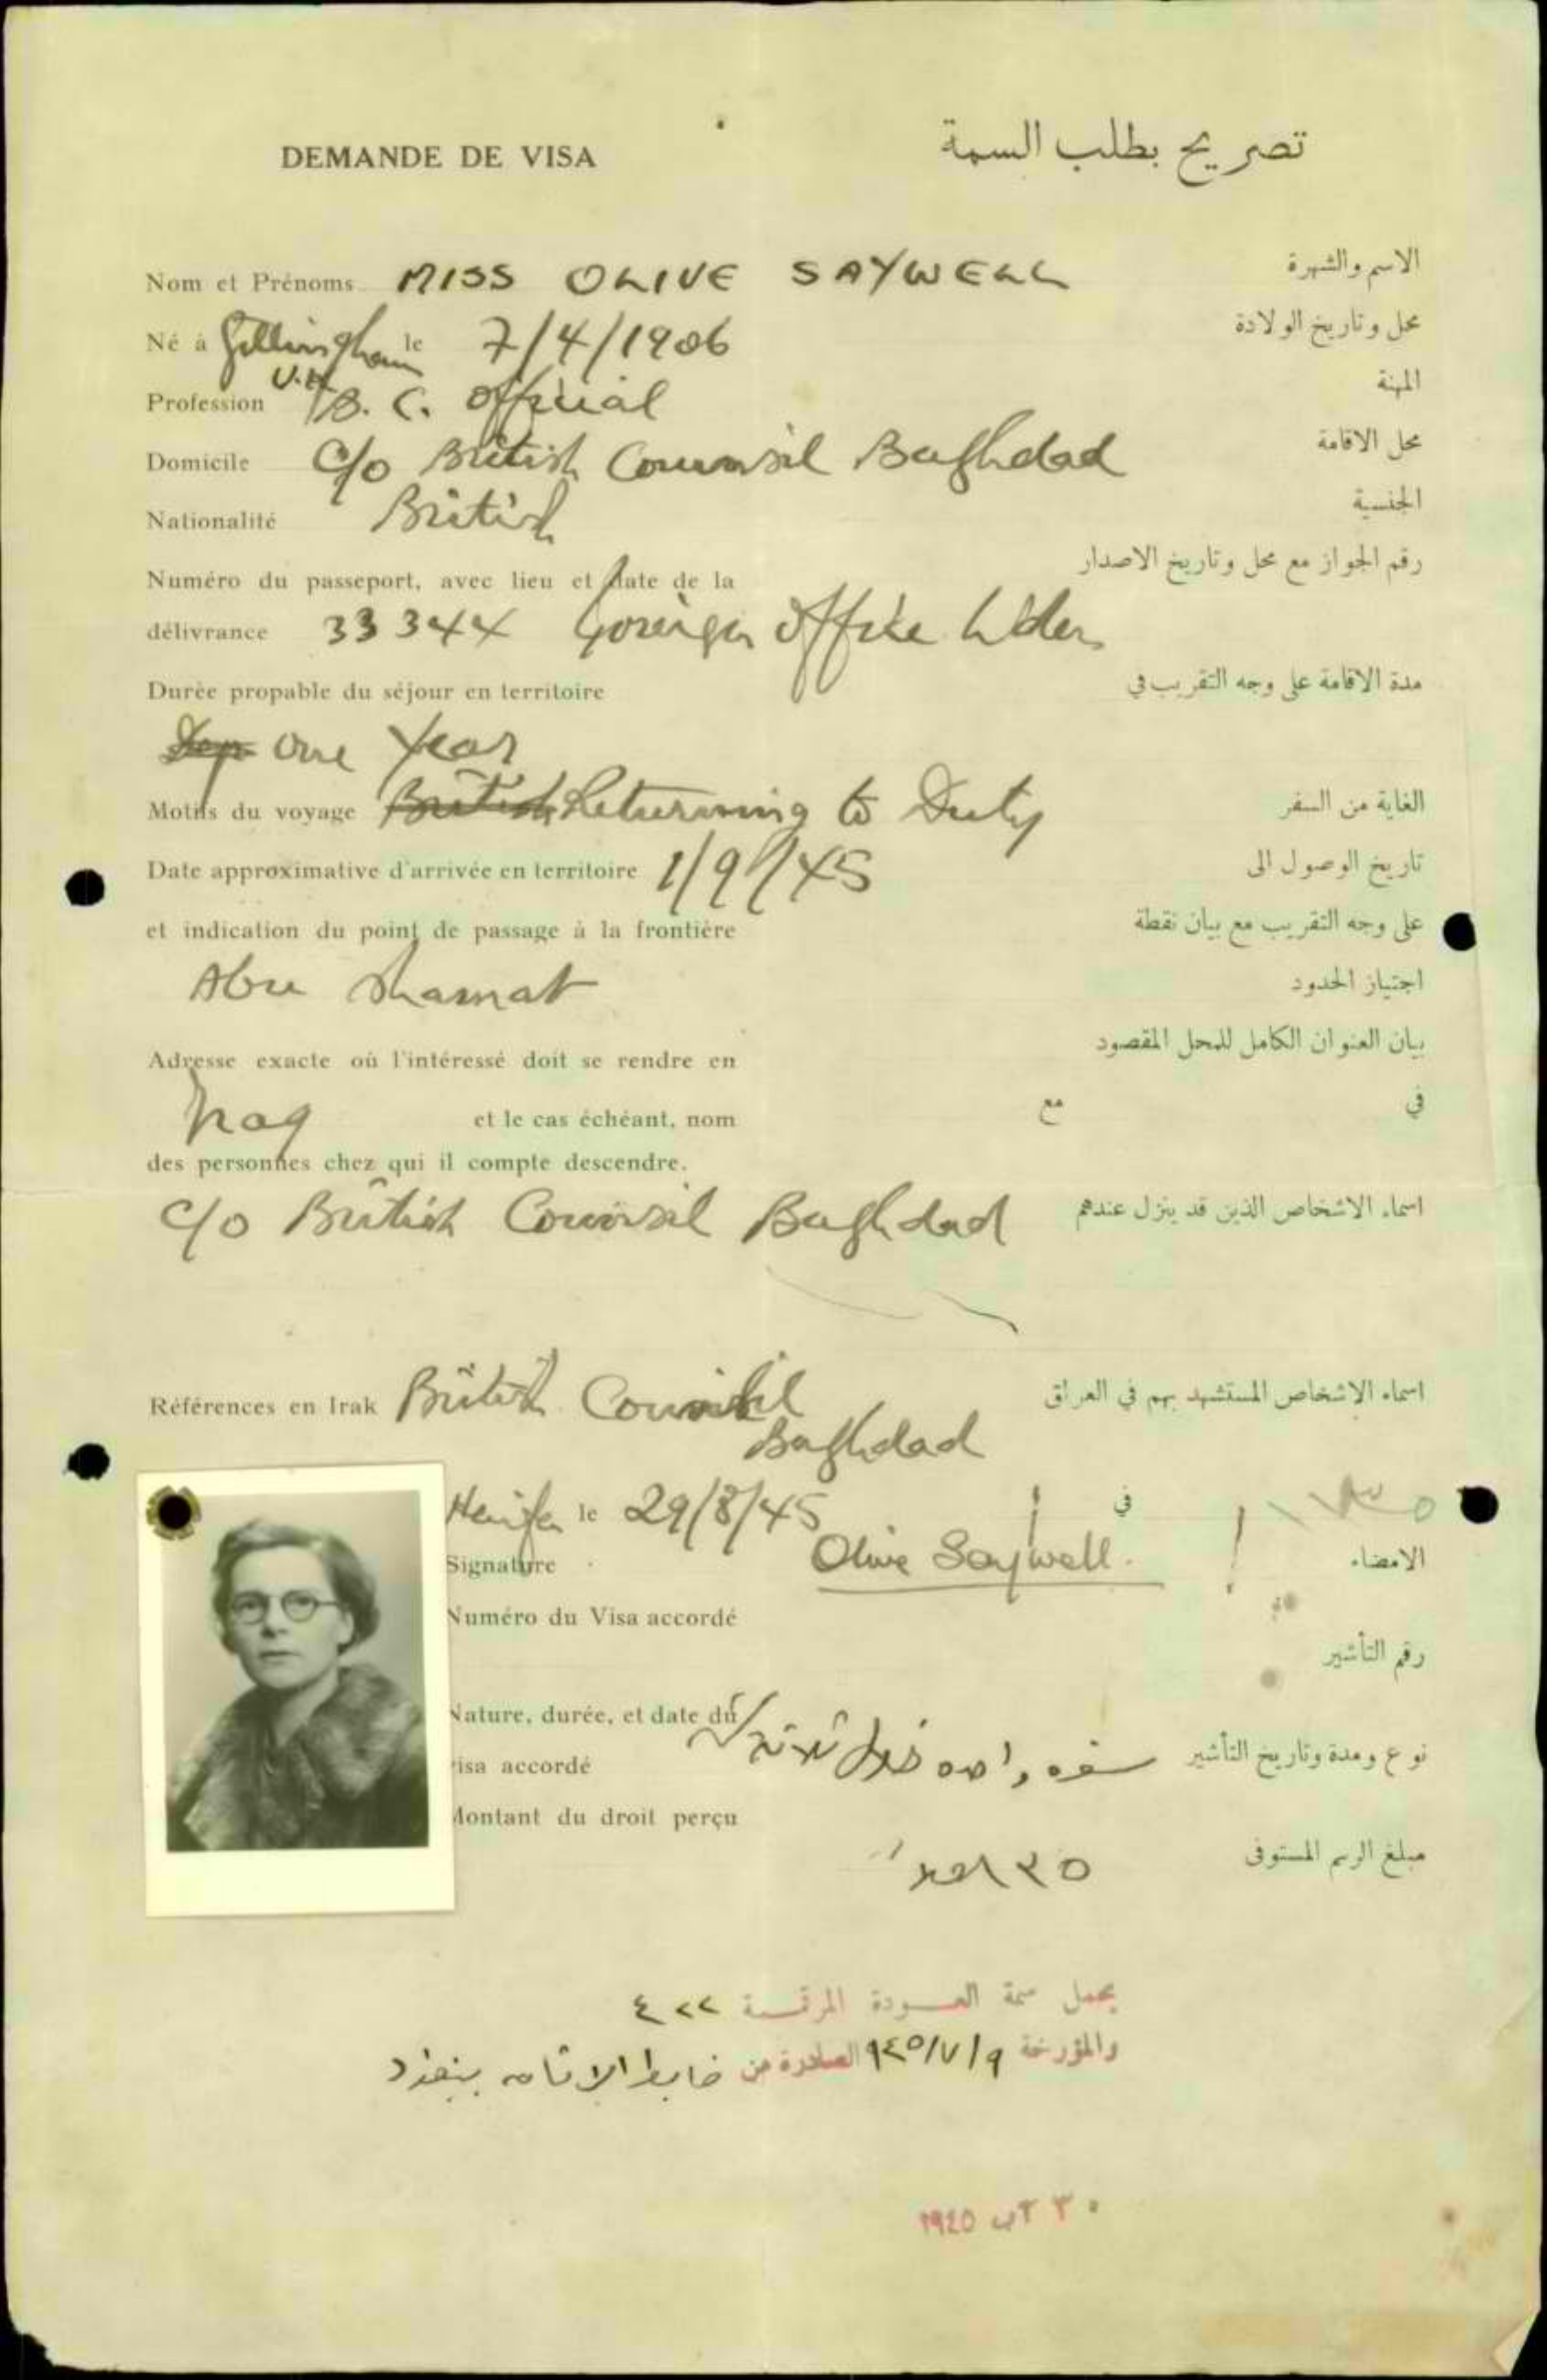 DEMANDE DE VISA تصريح بطلب السمة
Nom et Prénoms MISS OLIVE SAYWELL الاسم والشهرة
Né à Gillingham le 7/4/1906 محل وتاريخ الولادة
Profession B. C. Official المهنة
Domicile c/o British Counsil Baghdad محل الاقامة
Nationalité British الجنسية
Numéro du passeport, avec lieu et date de la رقم الجواز مع محل وتاريخ الاصدار
délivrance 33344 Foreign Office
Durée propable du séjour en territoire مدة الاقامة على وجه التقريب في
one Year
Motifs du voyage British Returning to Duty الغاية من السفر
Date approximative d'arrivée en territoire 1/9/45 تاريخ الوصول الى
et indication du point de passage à la frontière على وجه التقريب مع بيان نقطة
Abu Shamat اجتياز الحدود
Adresse exacte où l'intéressé doit se rendre en بيان العنوان الكامل للمحل المقصود
Iraq et le cas échéant, nom مع في
des personnes chez qui il compte descendre.
c/o British Counsil Baghdad اسماء الاشخاص الذين قد ينزل عندهم
Références en Irak British Counsil اسماء الاشخاص المستشهد بهم في العراق
Baghdad
Haifa le 29/8/45 في
Signature Olive Saywell. الامضاء
Numéro du Visa accordé
رقم التأشير
Nature, durée, et date du
visa accordé سفره واحده خلال ثلاثة نوع ومدة وتاريخ التأشير
Montant du droit perçu
مبلغ الرسم المستوفى
يحمل سمة العودة المرقمة ٤٢٢
والمؤرخة ٩/٧/٩٤٥ الصادرة من ضابط الاقامه ببغداد
٣٠ آب ١٩٤٥